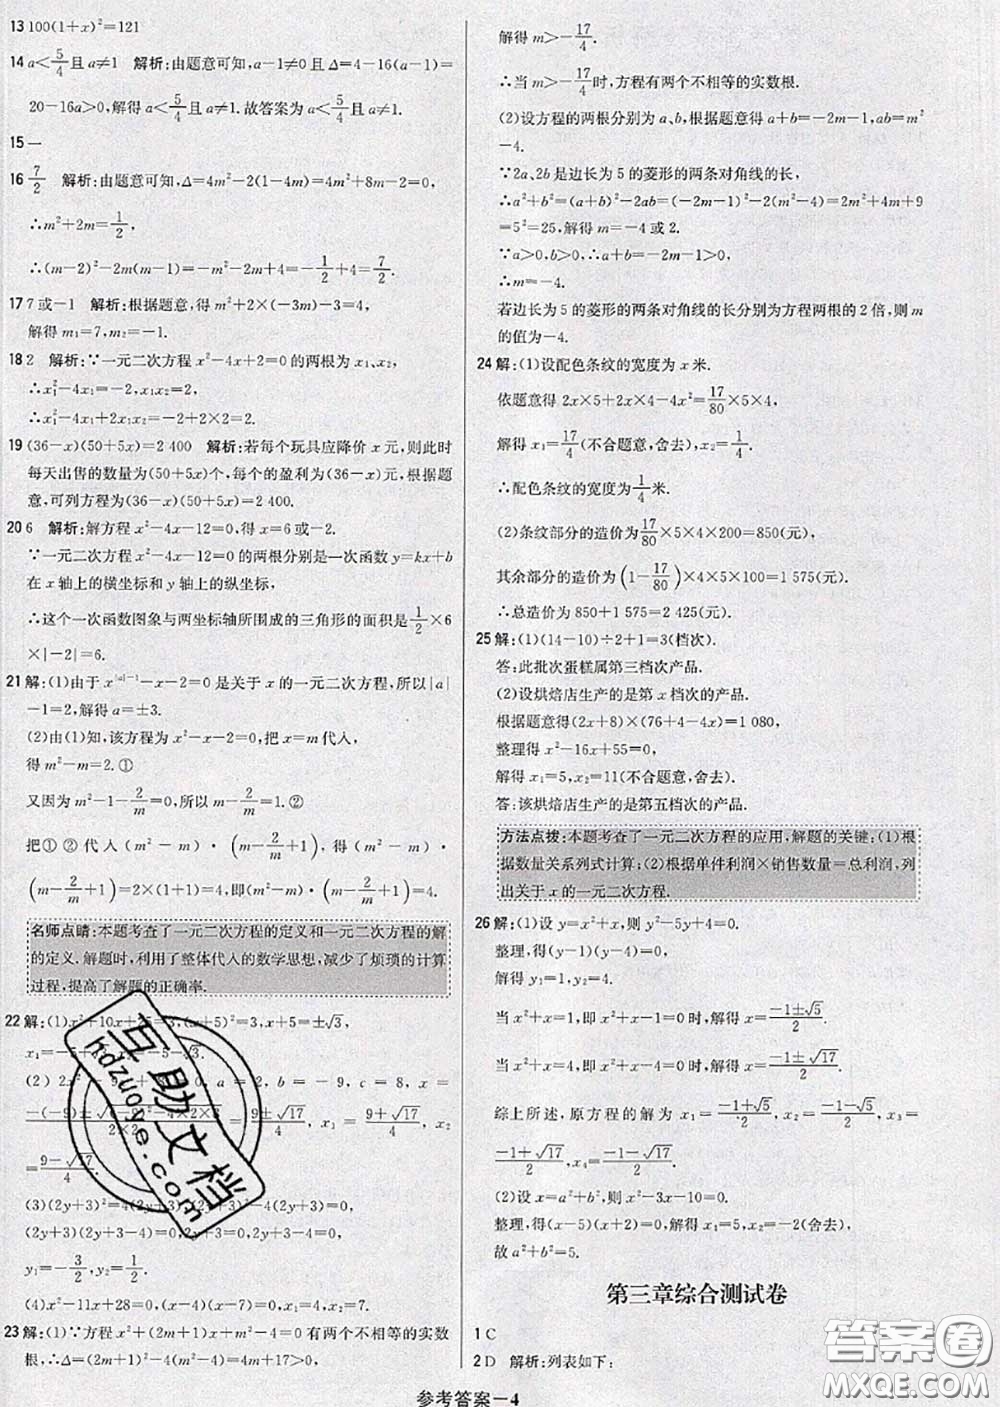 13 100(1+x)²=121
14 a<5/4且a≠1 解析:由题意可知,a-1≠0且Δ=4-16(a-1)=
20-16a>0,解得a<5/4且a≠1.故答案为a<5/4且a≠1.
15 一
16 7/2 解析:由题意可知,Δ=4m²-2(1-4m)=4m²+8m-2=0,
∴m²+2m=1/2,
∴(m-2)²-2m(m-1)=-m²-2m+4=-1/2+4=7/2.
17 7或-1 解析:根据题意,得m²+2×(-3m)-3=4,
解得m₁=7,m₂=-1.
18 2 解析:∵一元二次方程x²-4x+2=0的两根为x₁、x₂,
∴x₁²-4x₁=-2,x₁x₂=2,
∴x₁²-4x₁+2x₁x₂=-2+2×2=2.
19 (36-x)(50+5x)=2 400 解析:若每个玩具应降价x元,则此时
每天出售的数量为(50+5x)个,每个的盈利为(36-x)元,根据题
意,可列方程为(36-x)(50+5x)=2 400.
20 6 解析:解方程x²-4x-12=0,得x=6或-2.
∵一元二次方程x²-4x-12=0的两根分别是一次函数y=kx+b
在x轴上的横坐标和y轴上的纵坐标,
∴这个一次函数图象与两坐标轴所围成的三角形的面积是1/2×6
×|-2|=6.
21 解:(1)由于x^{|a|-1}-x-2=0是关于x的一元二次方程,所以|a|
-1=2,解得a=±3.
(2)由(1)知,该方程为x²-x-2=0,把x=m代入,
得m²-m=2.①
又因为m²-1-2/m=0,所以m-1=2/m.②
把①②代入(m²-m)·(m-2/m+1),得(m²-m)·
(m-2/m+1)=2×(1+1)=4,即(m²-m)·(m-2/m+1)=4.
名师点睛:本题考查了一元二次方程的定义和一元二次方程的解
的定义.解题时,利用了整体代入的数学思想,减少了烦琐的计算
过程,提高了解题的正确率.
22 解:(1)x²+10x+25=3,(x+5)²=3,x+5=±√3,
x₁=-5+√3,x₂=-5-√3.
(2) 2x² a=2, b=-9, c=8, x=
(-(-9)±√(9²-4×2×8))/(2×2)=(9±√17)/4, x₁=(9+√17)/4, x₂
=(9-√17)/4.
(3)(2y+3)²=4(2y+3),(2y+3)²-4(2y+3)=0,
(2y+3)(2y+3-4)=0,2y+3=0,2y-1=0,
y₁=-3/2,y₂=1/2.
(4)x²-11x+28=0,(x-4)(x-7)=0,x₁=4,x₂=7.
23 解:(1)∵方程x²+(2m+1)x+m²-4=0有两个不相等的实数
根,∴Δ=(2m+1)²-4(m²-4)=4m+17>0,
解得m>-17/4.
∴当m>-17/4时,方程有两个不相等的实数根.
(2)设方程的两根分别为a、b,根据题意得a+b=-2m-1,ab=m²
-4.
∵2a、2b是边长为5的菱形的两条对角线的长,
∴a²+b²=(a+b)²-2ab=(-2m-1)²-2(m²-4)=2m²+4m+9
=5²=25,解得m=-4或2.
∵a>0,b>0,∴a+b=-2m-1>0,
∴m=-4.
若边长为5的菱形的两条对角线的长分别为方程两根的2倍,则m
的值为-4.
24 解:(1)设配色条纹的宽度为x米.
依题意得2x×5+2x×4-4x²=17/80×5×4,
解得x₁=17/4(不合题意,舍去),x₂=1/4.
∴配色条纹的宽度为1/4米.
(2)条纹部分的造价为17/80×5×4×200=850(元),
其余部分的造价为(1-17/80)×4×5×100=1 575(元).
∴总造价为850+1 575=2 425(元).
25 解:(1)(14-10)÷2+1=3(档次).
答:此批次蛋糕属第三档次产品.
(2)设烘焙店生产的是第x档次的产品.
根据题意得(2x+8)×(76+4-4x)=1 080,
整理得x²-16x+55=0,
解得x₁=5,x₂=11(不合题意,舍去).
答:该烘焙店生产的是第五档次的产品.
方法点拨:本题考查了一元二次方程的应用,解题的关键:(1)根
据数量关系列式计算;(2)根据单件利润×销售数量=总利润,列
出关于x的一元二次方程.
26 解:(1)设y=x²+x,则y²-5y+4=0,
整理,得(y-1)(y-4)=0,
解得y₁=1,y₂=4.
当x²+x=1,即x²+x-1=0时,解得x=(-1±√5)/2.
当x²+x=4,即x²+x-4=0时,解得x=(-1±√17)/2.
综上所述,原方程的解为x₁=(-1+√5)/2,x₂=(-1-√5)/2,x₃=
(-1+√17)/2,x₄=(-1-√17)/2.
(2)设x=a²+b²,则x²-3x-10=0,
整理,得(x-5)(x+2)=0,解得x₁=5,x₂=-2(舍去),
故a²+b²=5.
第三章综合测试卷
1 C
2 D 解析:列表如下:
参考答案-4
互助文档
hdzuoye.com
答案圈
MXQE.COM